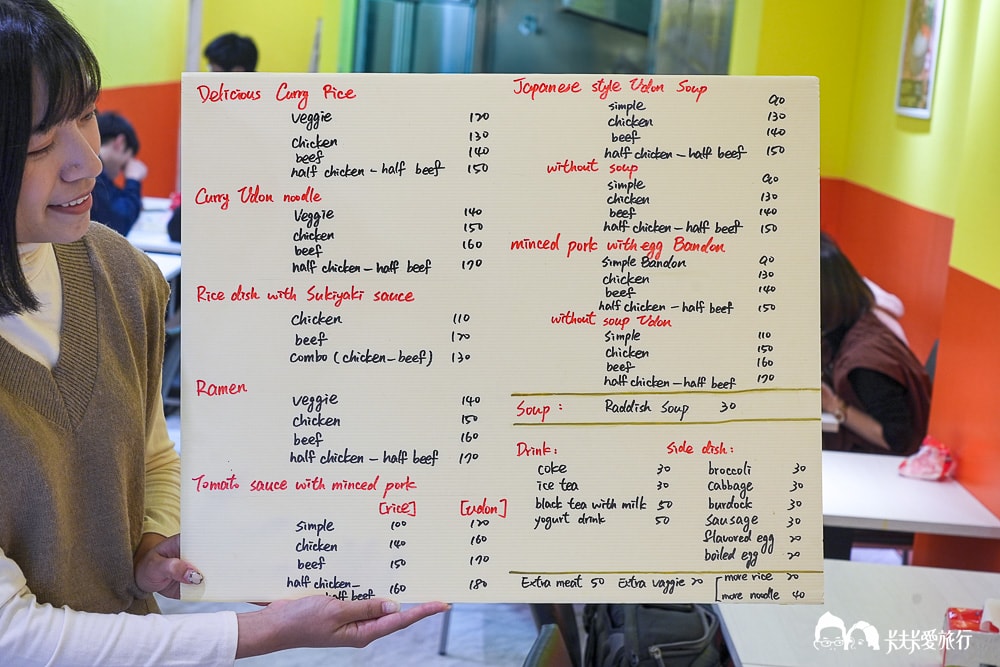 Delicious Curry Rice
veggie 120
chicken 130
beef 140
half chicken - half beef 150
Curry Udon noodle
Veggie 140
chicken 150
beef 160
half chicken - half beef 170
Rice dish with Sukiyaki sauce
chicken 110
beef 120
combo (chicken-beef) 130
Ramen
veggie 140
chicken 150
beef 160
half chicken - half beef 170
Tomato sauce with minced pork
[rice] [udon]
simple 100 120
chicken 140 160
beef 150 170
half chicken-
half beef 160 180
Japanese style Udon Soup
simple 90
chicken 130
beef 140
half chicken - half beef 150
without soup
simple 90
chicken 130
beef 140
half chicken - half beef 150
minced pork with egg Bandon
simple Bandon 90
chicken 130
beef 140
half chicken - half beef 150
without soup Udon
simple 110
chicken 150
beef 160
half chicken - half beef 170
Soup: Raddish Soup 30
Drink:
coke 30
ice tea 30
black tea with milk 50
yogurt drink 50
Side dish:
broccoli 30
cabbage 30
burdock 30
sausage 30
flavored egg 20
boiled egg 20
Extra meat 50 Extra vaggie 20 [more rice 20
more noodle 40
卡夫卡愛旅行